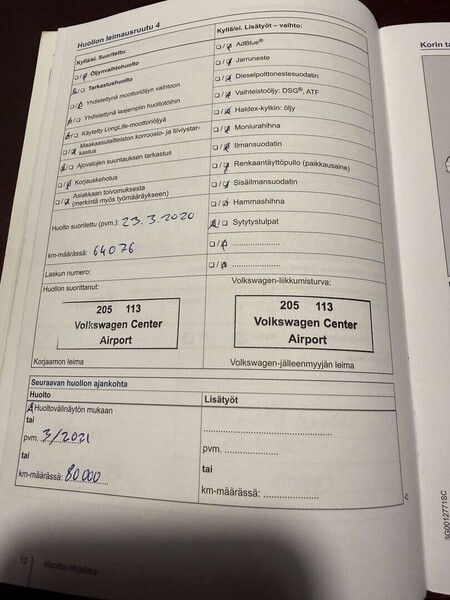 Huollon leimausruutu 4
Kyllä/ei. Suoritettu:
Öljynvaihtohuolto
Tarkastushuolto
Yhdistettynä moottoriöljyn vaihtoon
Yhdistettynä laajempiin huoltotöihin
Käytetty LongLife-moottoriöljyä
Maakaasulaitteiston korroosio- ja tiiviystar-
kastus
Ajovalojen suuntauksen tarkastus
Korjauskehotus
Asiakkaan toivomuksesta
(merkintä myös työmääräykseen)
Huolto suoritettu (pvm.): 23.3.2020
km-määrässä: 64076
Laskun numero:
Huollon suorittanut:
205 113
Volkswagen Center
Airport
Korjaamon leima
Kyllä/ei. Lisätyöt – vaihto:
AdBlue®
Jarruneste
Dieselpolttonestesuodatin
Vaihteistoöljy: DSG®, ATF
Haldex-kytkin: öljy
Moniurahihna
Ilmansuodatin
Renkaantäyttöpullo (paikkausaine)
Sisäilmansuodatin
Hammashihna
Sytytystulpat
Volkswagen-liikkumisturva:
205 113
Volkswagen Center
Airport
Volkswagen-jälleenmyyjän leima
Seuraavan huollon ajankohta
Huolto
Huoltovälinäytön mukaan
tai
pvm. 3/2021
tai
km-määrässä: 80000
Lisätyöt
pvm.
tai
km-määrässä:
12 Huolto-ohjelma
Korin ta